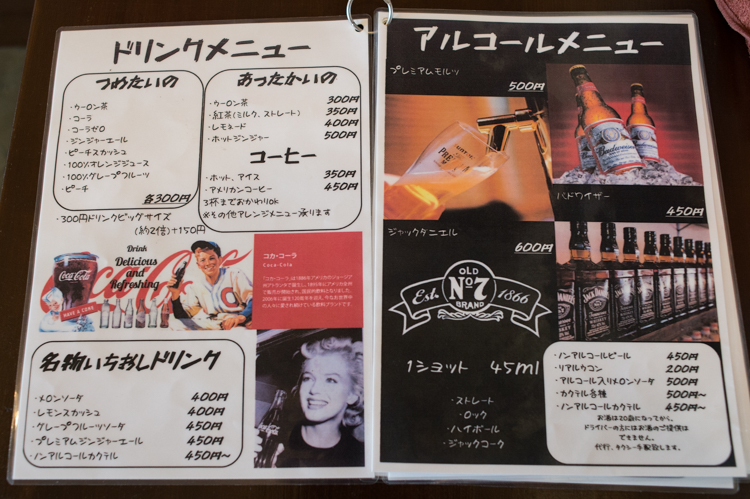 ドリンクメニュー
つめたいの
・ウーロン茶
・コーラ
・コーラゼロ
・ジンジャーエール
・ピーチスカッシュ
・100%オレンジジュース
・100%グレープフルーツ
・ピーチ
各300円
・300円ドリンクビッグサイズ
(約2倍)+150円
あったかいの
・ウーロン茶 300円
・紅茶(ミルク、ストレート) 350円
・レモネード 400円
・ホットジンジャー 500円
コーヒー
・ホット、アイス 350円
・アメリカンコーヒー 450円
3杯までおかわりok
※その他アレンジメニュー承ります
Drink
Delicious
and
Refreshing
Coca-Cola
HAVE A COKE
Coca-Cola
コカ・コーラ
Coca-Cola
名物いちおしドリンク
・メロンソーダ 400円
・レモンスカッシュ 400円
・グレープフルーツソーダ 450円
・プレミアムジンジャーエール 450円
・ノンアルコールカクテル 450円~
アルコールメニュー
プレミアムモルツ
500円
Budweiser
バドワイザー
450円
ジャックダニエル
600円
OLD
Est. No.7 1866
BRAND
1ショット 45ml
・ストレート
・ロック
・ハイボール
・ジャックコーク
・ノンアルコールビール 450円
・リアルウコン 200円
・アルコール入りメロンソーダ 500円
・カクテル各種 500円~
・ノンアルコールカクテル 450円~
お酒は20歳になってから。
ドライバーの方にはお酒のご提供は
できません。
代行、タクシー手配致します。